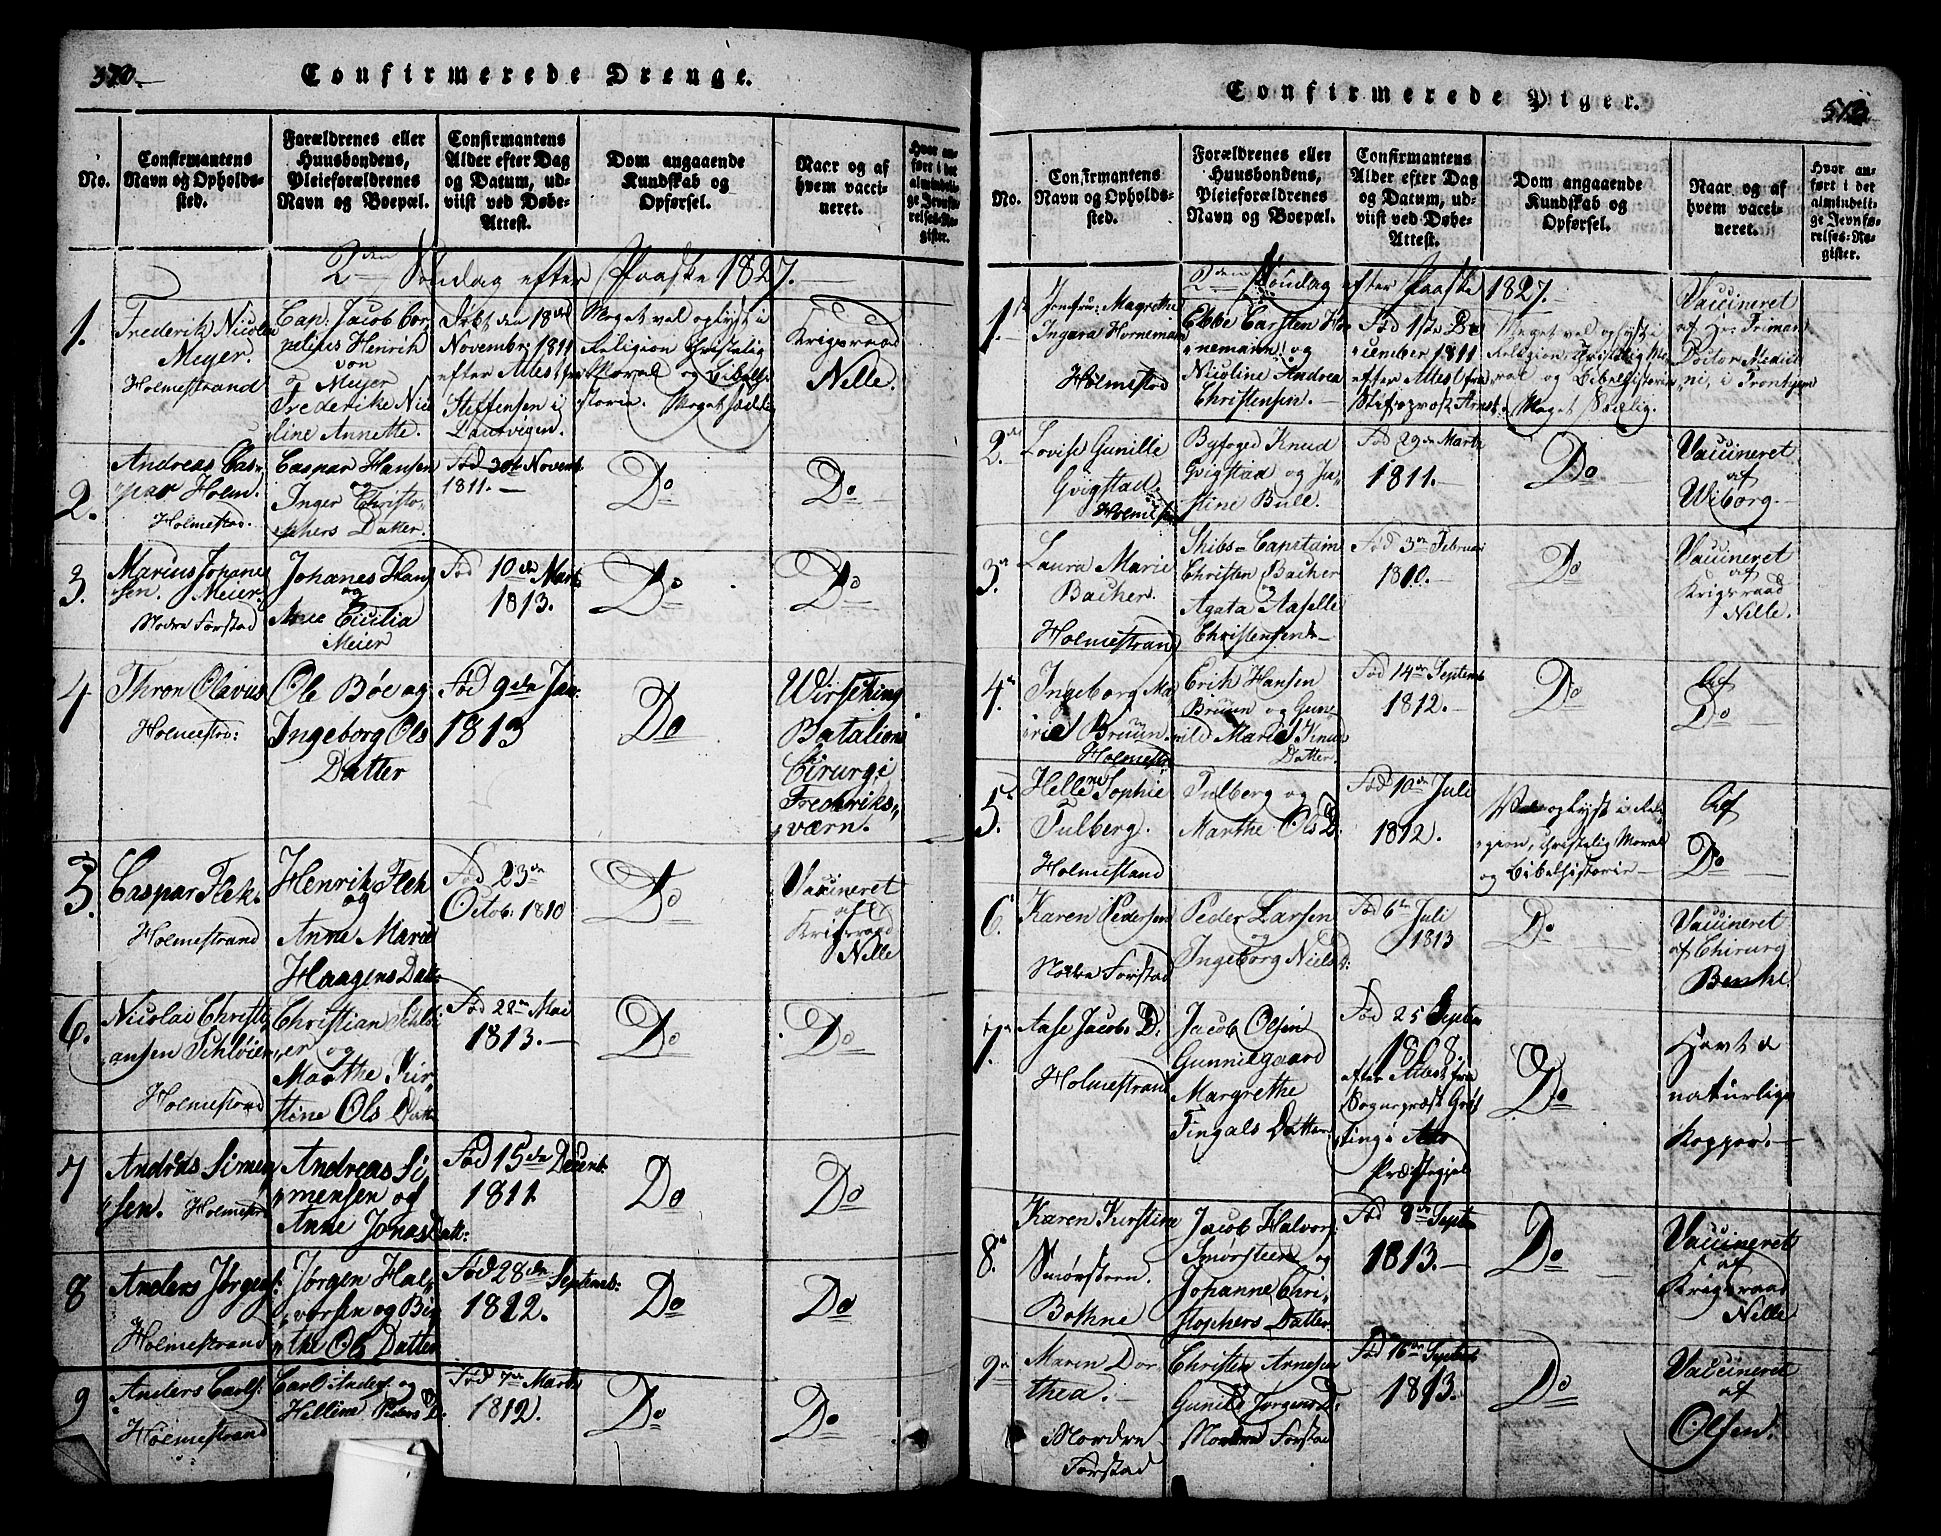 Confirmerede Drenge.
No.
Confirmantens
Navn og Opholds-
sted.
Forældrenes eller
Huusbondens,
Pleieforældrenes
Navn og Boepæl.
Confirmantens
Alder efter Dag
og Datum, ud-
viist ved Døbe-
Attest.
Dom angaaende
Kundskab og
Opførsel.
Naar og af
hvem vacci-
neret.
Hvor an-
ført i det
almindeli-
ge Jevnfø-
relses-Re-
gister.
2den Søndag efter Paaske 1827.
1.
Frederik Nicolai
Meyer.
Holmestrand
Cap: Jacob Cor-
nelius Henrik
von
Meyer
Frederike Nico
line Annette.
Født den 18de
November 1811
efter Attest fra
Steffensen i
Laurvigen.
Meget vel oplyst i
Religion Christelig
Moral og Bibelhi-
storie. Meget sædelig
Krigsraad
Nelle.
2.
Andreas Cas-
par Holm.
Holmestrad.
Caspar Hansen
og
Inger Christo-
phers Datter.
Fød 30te Novemb.
1811.
Do
Do
3.
Marius Johane
sen. Meier.
Nodre Forstad
Johanes Han
og
Ane Cicilia
Meier
Fød 10de Marts
1813.
Do
Do
4
Thron Olavus
Holmestr:
Ole Bøe og
Ingeborg Ols
Datter
Fød 9de Jan:
1813
Do
Wirsching
Batalions
Cirurgi
Fredriks-
værn.
5.
Caspar Flek.
Holmestrand
Henrik Flek
og
Anne Marie
Haagens Dat.
Fød 23de
Octob: 1810
Do
Vaccineret
af
Krigsraad
Nelle
6.
Nicolai Christi
ansen Schlöier
Holmestrand
Christian Schlöi
er og
Marthe Kir-
stine Ols Datt
Fød 22de Mai
1813.
Do
Do
7
Andreas Simen
sen. Holmestr
Andreas Si
mensen og
Anne Jonas Datt:
Fød 15de Decemb:
1811
Do
Do
8
Anders Jørgens:
Holmestrand
Jørgen Hal-
vorsen og Bir
the Ols Datter
Fød 28de Septemb:
1812.
Do
Do
9
Anders Carls:
Holmestrand
Carl Anders: og
Helline Peders D:
Fød 7de Marts
1812.
Do
Do
Confirmerede Piger.
513
No.
Confirmantens
Navn og Opholds-
sted.
Forældrenes eller
Huusbondens,
Pleieforældrenes
Navn og Boepæl.
Confirmantens
Alder efter Dag
og Datum, ud-
viist ved Døbe-
Attest.
Dom angaaende
Kundskab og
Opførsel.
Naar og af
hvem vacci-
neret.
Hvor an-
ført i det
almindeli-
ge Jevnfø-
relses-Re-
gister.
2den Søndag efter Paaske 1827.
1.
Jomfru: Magrethe
Ingara Hornemann
Holmestad
Ebbe Carsten Hor
nemann og
Nicoline Andrea
Christensen.
Fød 17de De
cember 1811
efter Attest fra
Stiftsprovst Arnet
Meget vel oplyst i
Religion, Christelig Mo
ral og Bibelhistorie
Meget Sædelig.
Vaccineret
af Hr: Friman
Doctor Medici
ni, i Tronhjem
2.
Lovise Gunille
Gvigstad
Holmestr
Byfoged Knud
Gvigstad og Ju-
stine Bull.
Fød 29de Marts
1811.
Do
Vaccineret
af
Wiborg.
3.
Laura Marie
Bacher.
Holmestrand
Skibs-Capitain
Christen Bacher
Agata Aaselle
Christensen
Fød 3de Februar
1810.
Do
Vaccineret
af
Krigsraad
Nelle.
4.
Ingeborg Ma
rie Bruun.
Holmestr
Erik Hansen
Bruun og Gun
nild Marie Knuds
Datter.
Fød 14de Septemb
1812.
Do
Af
Do
5.
Hellene Sophie
Tulberg.
Holmestand
Tulberg og
Marthe Ols D.
Fød 10de Juli
1812.
Vel oplyst i Reli
gion, Christelig Moral
og Bibelhistorie
Af
Do
6.
Karen Pedersen
Nodre Forstad
Peder Larsen
og
Ingeborg Niels D:
Fød 6te Juli
1813
Do
Vaccineret
af Chirurg
Benke.
7.
Aase Jacobs D:
Holmestrand
Jacob Olsen
Gunnilgaard
Margrethe
Tingals Datter.
Fød 25 Septem
1808.
efter Attest fra
Sognepræst
Præstegjel
Do
Havt de
naturlige
Kopper.
8.
Karen Kirstine
Smörsteen.
Bothne
Jacob Halvor
Smörsteen og
Johanne Chri-
stophers Datter
Fød 8de Septem
1813.
Do
Vaccineret
af
Krigsraad
Nelle
9
Maren Dor
thea.
Nordre
Forstad
Christen Arnesen
Gunild Jørgens D:
Nordre Forstad
Fød 16de Septem
1813.
Do
Vaccineret
af
Olsen.